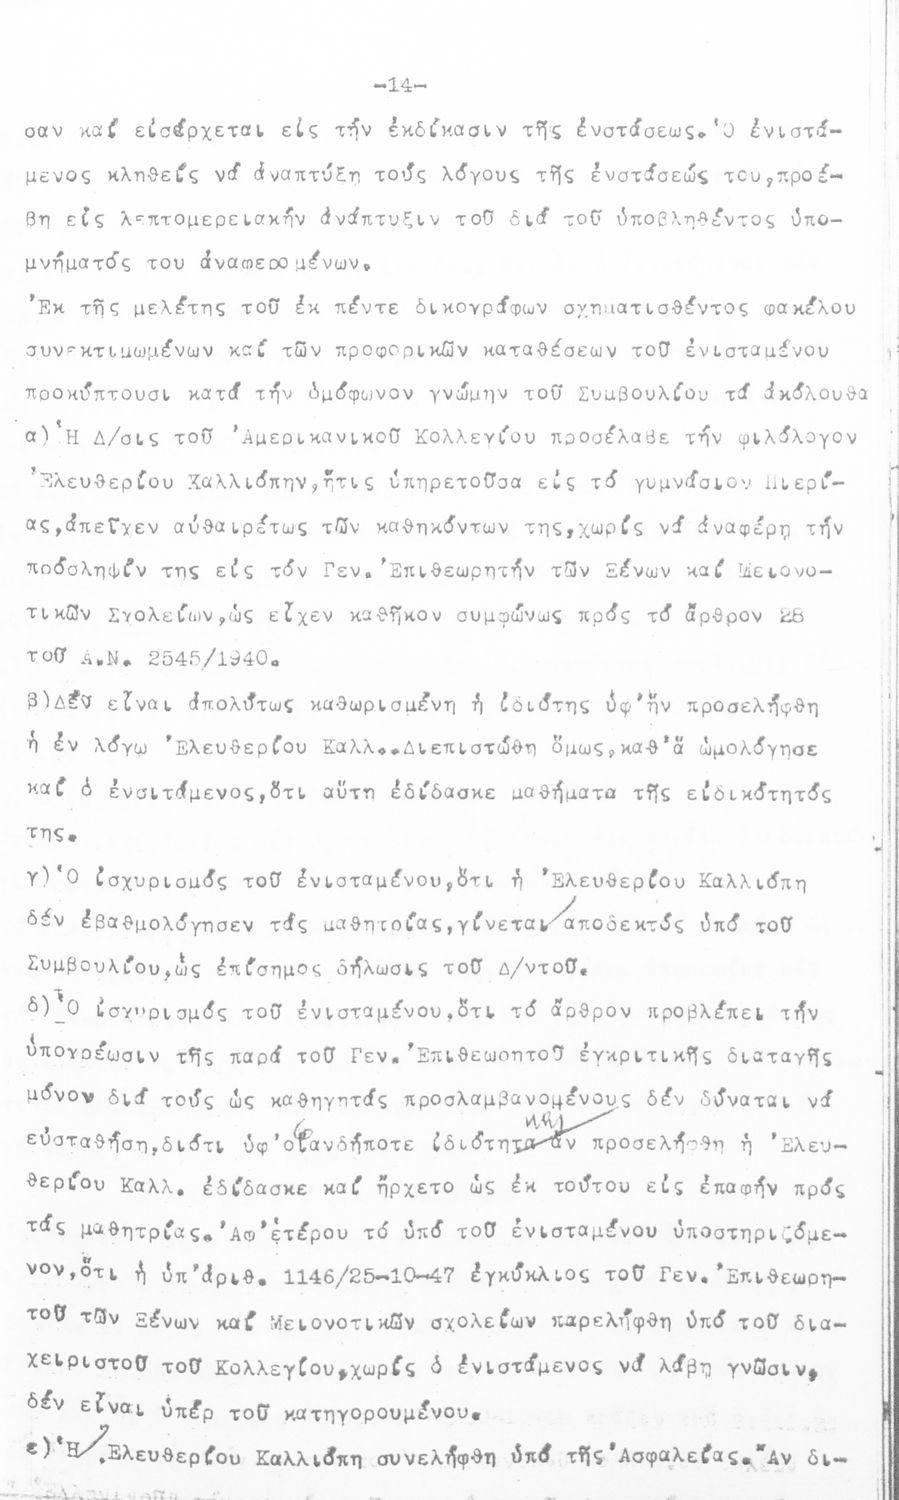 -14-
σαν καί εἰσέρχεται εἰς τήν ἐκδίκασιν τῆς ἐνστάσεως. Ὁ ἐνιστά-
μενος κληθείς νά ἀναπτύξη τούς λόγους τῆς ἐνστάσεώς του,προέ-
βη εἰς λεπτομερειακήν ἀνάπτυξιν τοῦ διά τοῦ ὑποβληθέντος ὑπο-
μνήματός του ἀναφερομένων.
Ἐκ τῆς μελέτης τοῦ ἐκ πέντε δικογράφων σχηματισθέντος φακέλου
συνεκτιμωμένων καί τῶν προφορικῶν καταθέσεων τοῦ ἐνισταμένου
προκύπτουσι κατά τήν ὁμόφωνον γνώμην τοῦ Συμβουλίου τά ἀκόλουθα
α) Ἡ Δ/σις τοῦ Ἀμερικανικοῦ Κολλεγίου προσέλαβε τήν φιλόλογον
Ἐλευθερίου Καλλιόπην,ἥτις ὑπηρετοῦσα εἰς τό γυμνάσιον Πιερί-
ας,ἀπεῖχεν αὐθαιρέτως τῶν καθηκόντων της,χωρίς νά ἀναφέρη τήν
πρόσληψίν της εἰς τόν Γεν. Ἐπιθεωρητήν τῶν Ξένων καί Μειονο-
τικῶν Σχολείων,ὡς εἶχεν καθῆκον συμφώνως πρός τό ἄρθρον 28
τοῦ Α.Ν. 2545/1940.
β)Δέν εἶναι ἀπολύτως καθωρισμένη ἡ ἰδιότης ὑφ'ἥν προσελήφθη
ἡ ἐν λόγω Ἐλευθερίου Καλλ..Διεπιστώθη ὅμως,καθ'ἅ ὡμολόγησε
καί ὁ ἐνσιτάμενος,ὅτι αὕτη ἐδίδασκε μαθήματα τῆς εἰδικότητός
της.
γ) Ὁ ἰσχυρισμός τοῦ ἐνισταμένου,ὅτι ἡ Ἐλευθερίου Καλλιόπη
δέν ἐβαθμολόγησεν τάς μαθητρίας,γίνεται ἀποδεκτός ὑπό τοῦ
Συμβουλίου,ὡς ἐπίσημος δήλωσις τοῦ Δ/ντοῦ.
δ) Ὁ ἰσχυρισμός τοῦ ἐνισταμένου,ὅτι τό ἄρθρον προβλέπει τήν
ὑποχρέωσιν τῆς παρά τοῦ Γεν. Ἐπιθεωρητοῦ ἐγκριτικῆς διαταγῆς
μόνον διά τούς ὡς καθηγητάς προσλαμβανομένους δέν δύναται νά
εὐσταθήση,διότι ὑφ'οἱανδήποτε ἰδιότητα ἄν προσελήφθη ἡ Ἐλευ-
θερίου Καλλ. ἐδίδασκε καί ἤρχετο ὡς ἐκ τούτου εἰς ἐπαφήν πρός
τάς μαθητρίας. Ἀφ'ἑτέρου τό ὑπό τοῦ ἐνισταμένου ὑποστηριζόμε-
νον,ὅτι ἡ ὑπ'ἀριθ. 1146/25-10-47 ἐγκύκλιος τοῦ Γεν. Ἐπιθεωρη-
τοῦ τῶν Ξένων καί Μειονοτικῶν σχολείων παρελήφθη ὑπό τοῦ δια-
χειριστοῦ τοῦ Κολλεγίου,χωρίς ὁ ἐνιστάμενος νά λάβη γνῶσιν,
δέν εἶναι ὑπέρ τοῦ κατηγορουμένου.
ε) Ἡ Ἐλευθερίου Καλλιόπη συνελήφθη ὑπό τῆς Ἀσφαλείας. Ἄν δι-